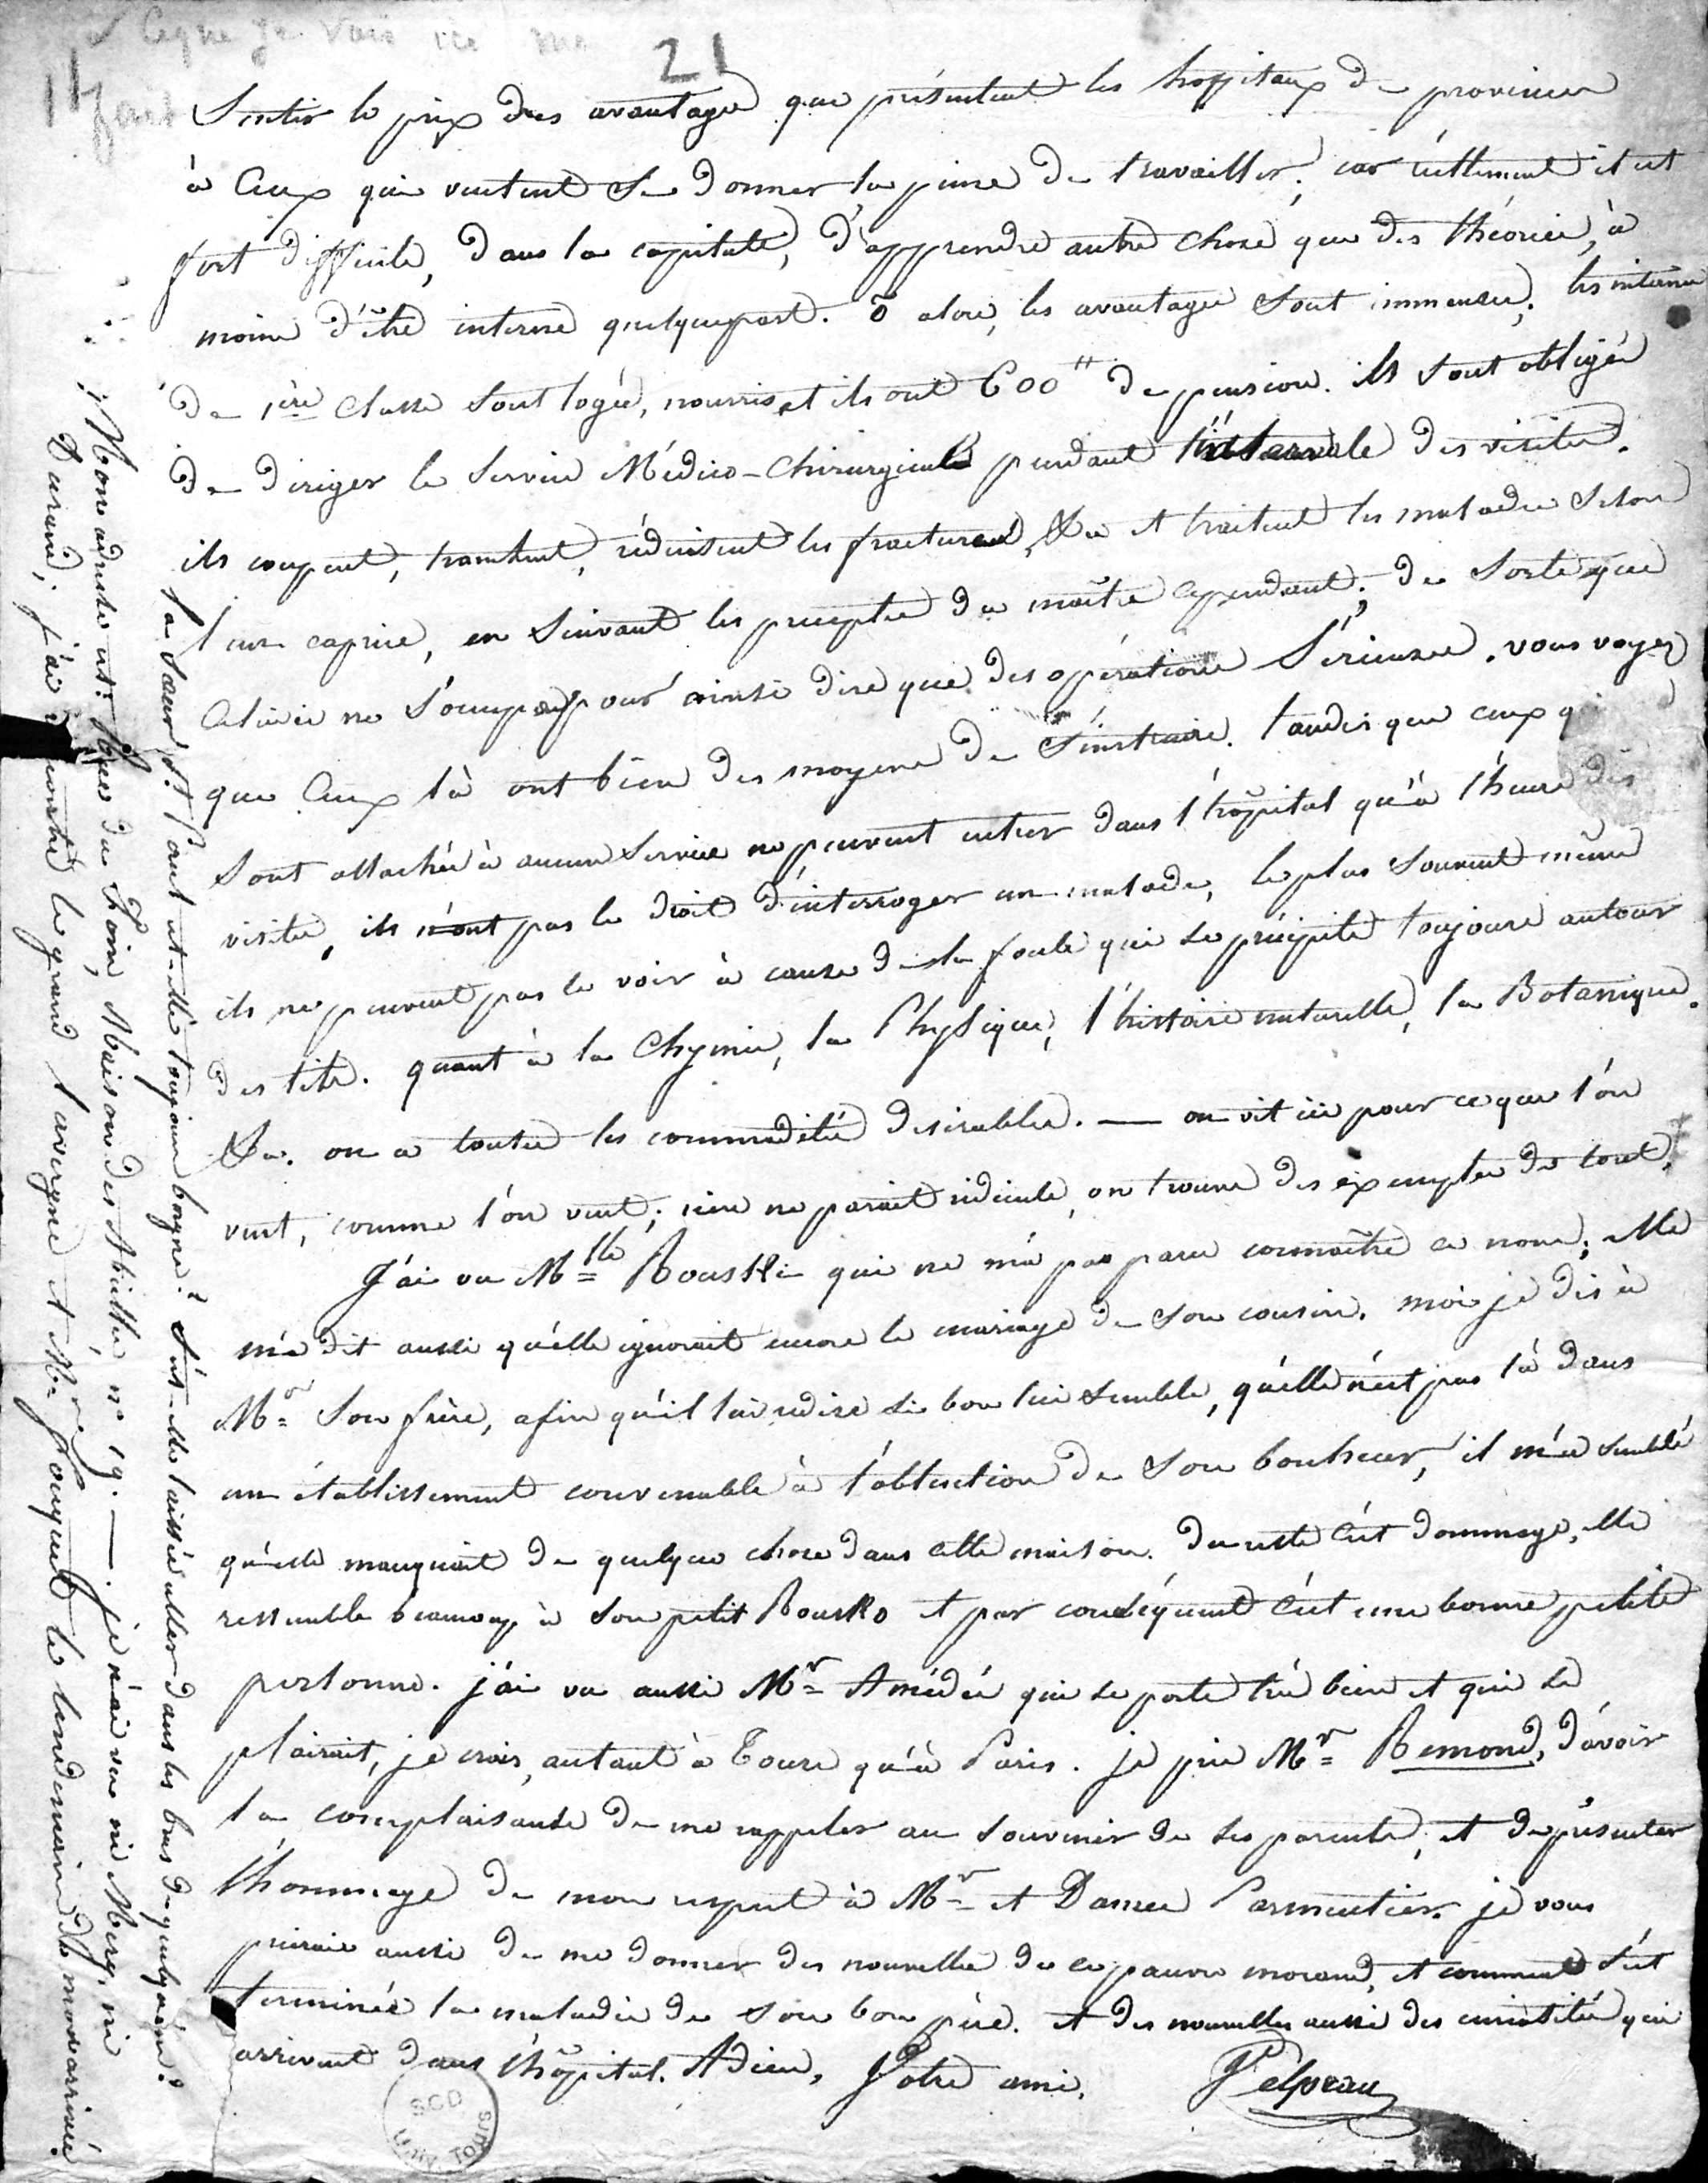 Ceque je vais ici me
21
fait Sentir le prix des avantages que présentent les hospitaux de province
à Ceux qui veulent se donner la peine de travailler; car réellement il est
fort difficile, dans la capitale, d'apprendre autre chose que des théories, à
moins d'être interne quelquepart. ô alors, les avantages sont immenses; les internes
de 1ère Classe sont logés, nourris et ils ont 600# de pension. ils sont obligés
de diriger le service Médico-Chirurgical pendant l'intervale des visites.
ils coupent, tranchent, réduisent les fractures, &a et traitent les malades selon
leur caprice, en suivant les preceptes du maître cependant; de sorte que
celui ci ne s'occupe pour ainsi dire que des opérations Sérieuses. vous voyez
que Ceux là ont bien des moyens de s'instruire. tandis que ceux qui
sont attachés à aucun service ne peuvent entrer dans l'hôpital qu'à l'heure des
visites, ils n'ont pas le droit d'interroger un malade, le plus souvent même
ils ne peuvent pas le voir à cause de la foule qui se précipite toujours autour
des lits. quant à la Chymie, la Physique, l'histoire naturelle, la Botanique.
&a. on a toutes les commodités desirables. — on vit ici pour ce que l'on
veut, comme l'on veut; rien ne parait ridicule, on trouve des exemples de tout.
J'ai vu Mlle Rouski qui ne m'a pas paru connaître ce nom; elle
m'a dit aussi qu'elle ignorait encore le mariage de son cousin. moi je dis à
Mr son frère, afin qu'il lui redise si bon lui semble, qu'elle n'est pas là dans
un établissement convenable à l'obtention de son bonheur, il m'a semblé
qu'elle manquait de quelque chose dans cette maison. du reste c'est dommage, elle
ressemble beaucoup à son petit Rousko et par conséquent c'est une bonne petite
personne. j'ai vu aussi Mr Amédée qui se porte très bien et qui se
plairait, je crois, autant à Tours qu'à Paris. je prie Mr Remond, d'avoir
la complaisance de me rappeler au souvenir de ses parents, et de présenter
l'hommage de mon respect à Mr et Dames Parmentier. je vous
prierais aussi de me donner des nouvelles de ce pauvre morand, et comment s'est
terminée la maladie de son bon père. et des nouvelles aussi des curiosités qui
arrivent dans l'hôpital. Adieu, Votre ami,
Velpeau
SCD
UNIV. TOURS
la sœur St est-elle toujours borgne? s'est-elle laissée aller dans les bras de quelqu'un?
Mon adresse est: Rue du Foin, Maison des Abeilles, n° 19. — je n'ai vu ni Mery, ni
Durand; j'ai rencontré le grand lavergne et Mr fouquet le lendemain de mon arrivée.